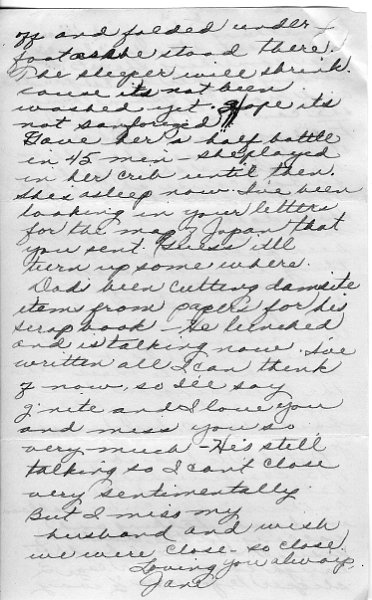 off and folded under-
foot as she stood there.
The sleeper will shrink.
cause its not been
washed yet. Hope its
not sanforized!!
Gave her a half bottle
in 45 min - she played
in her crib until then.
She's asleep now. I've been
looking in your letters
for the map of Japan that
you sent. Guess it'll
turn up some where.
Dad been cutting damsite
item from papers for his
scrap book - He lunched
and is talking now. I've
written all I can think
of now, so I'll say
g'nite and I love you
and miss you so
very much - He's still
talking so I can't close
very sentimentally.
But I miss my
husband and wish
we were close - so close.
Loving you always,
Jane